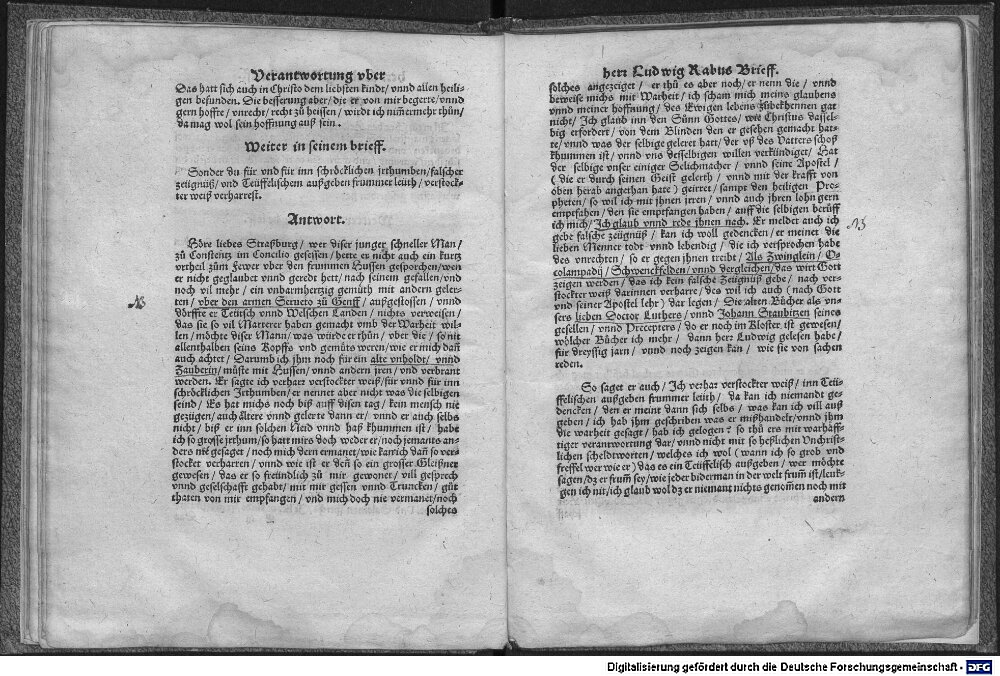 Verantwortung vber
Das hatt sich auch in Christo dem liebsten kindt/ vnnd allen heili-
gen befunden. Die besserung aber/ die er von mir begerte/ vnnd
gern hoffte/ vnrecht/ recht zů heissen/ wirdt ich nim̃ermehr thůn/
da mag wol sein hoffnung auß sein.
Weiter in seinem brieff.
Sonder du für vnd für inn schröcklichen jrthumben/ falscher
zeügnüß/ vnd Teüffelischem außgeben frummer leüth/ verstock-
ter weiß verharrest.
Antwort.
Höre liebes Straßburg/ wer diser junger schneller Man/
zů Constentz im Concilio gesessen/ hette er nicht auch ein kurtz
vrtheil zům Fewer vber den frummen Hussen gesporchen/ wen
er nicht geglaubet vnnd geredt hett/ nach seinem gefallen/ vnd
noch vil mehr/ ein vnbarmhertzig gemůth mit andern geler-
ten/ vber den armen Serueto zů Genff/ außgestossen/ vnnd
dörffte er Teütsch vnnd Welschen Landen/ nichts verweisen/
das sie so vil Marterer haben gemacht vmb der Warheit wil-
len/ möchte diser Mann/ was würde er thůn/ vber die/ so nit
allenthalben seins Kopffs vnd gemůts weren/ wie er mich dañ
auch achtet/ Darumb ich jhm noch für ein alte vnholdt/ vnnd
Zauberin/ můste mit Hussen/ vnnd andern jren/ vnd verbrant
werden. Er sagte ich verharz verstockter weiß/ für vnnd für inn
schröcklichen Jrthumben/ er nennet aber nicht was die selbigen
seind/ Es hat michs noch biß auff disen tag/ kein mensch nie
gezügen/ auch åltere vnnd gelerte dann er/ vnnd er auch selbs
nicht/ biß er inn solchen Neid vnnd haß khummen ist/ habe
ich so grosse jrthum/ so hatt mirs doch weder er/ noch jemants an-
ders nie gesaget/ noch mich dern ermanet/ wie kan ich dañ so ver-
stocker verharren/ vnnd wie ist er deñ so ein grosser Gleißner
gewesen/ das er so freündlich zů mir gewonet/ vill gesprech
vnnd geselschafft gehabt/ mit mir gessen vnnd Truncken/ gůt
thaten von mir empfangen/ vnd mich doch nie vermanet/ noch
solches
herr Ludwig Rabus Brieff.
solches angezeiget/ er thů es aber noch/ er nenn die/ vnnd
berweise michs mit Warheit/ ich scham mich meins glaubens
vnnd meiner hoffnung/ des Ewigen lebens zůbekhennen gar
nicht/ Ich glaub inn den Sůnn Gottes/ wie Christus dassel-
big erfordert/ von dem Blinden den er gesehen gemacht hat-
te/ vnnd was der selbige geleret hatt/ der vß des Vatters schoß
khummen ist/ vnnd vns desselbigen willen verkündiget/ Hat
der selbige vnser einiger Selichmacher/ vnnd seine Apostel/
( die er durch seinen Geist gelerth/ vnnd mit der krafft von
oben herab angethan hatt) geirret/ sampt den heiligen Pro-
pheten/ so wil ich mit jhnen jrren/ vnnd auch jhren lohn gern
empefahen/ den sie empfangen haben/ auff die selbigen berůff
ich mich/ Ich glaub vnnd rede jhnen nach. Er meldet auch ich
gebe falsche zeügnüß/ kan ich woll gedencken/ er meinet die
lieben Menner todt vnnd lebendig/ die ich versprochen habe
des vnrechten/ so er gegen jhnen treibt/ Als Zwinglein/ O-
colampadij/ Schwenckfelden/ vnnd dergleichen/ das wirt Gott
zeigen werden/ das ich kein falsche Zeügnüß gebe/ noch ver-
stockter weiß darinnen verharre/ des wil ich auch ( nach Gott
vnd seiner Apostel lehr) dar legen/ Die alten Bücher als vn-
sers lieben Doctor Luthers/ vnnd Johann Staubitzen seines
gesellen/ vnnd Precepters/ do er noch im Kloster ist gewesen/
wölcher Bücher ich mehr/ dann herr Ludwig gelesen habe/
für dreyssig jarn/ vnnd noch zeigen kan/ wie sie von sachen
reden.
So saget er auch/ Ich verhar verstockter weiß/ inn Teü-
ffelischen außgeben frummer leüth/ da kan ich niemandt ge-
dencken/ den er meint dann sich selbs/ was kan ich vill auß
geben/ ich hab jhm geschriben was er mißhandelt/ vnnd jhm
die warheit gesagt/ hab ich gelogen? so thů ers mit warhäff-
tiger verantwortung dar/ vnnd nicht mit so heßlichen Vnchrist-
lichen scheldtworten/ welches ich wol (wann ich so grob vnd
freffel wer wie er) das es ein Teüffelisch außgeben/ wer möchte
sagen/ dz er frum̃ sey/ wie jeder biderman in der welt frum̃ ist/ leük-
gen ich nit/ ich glaub wol dz er niemant nichts genom̃en noch mit
andern
Digitalisierung gefördert durch die Deutsche Forschungsgemeinschaft - DFG